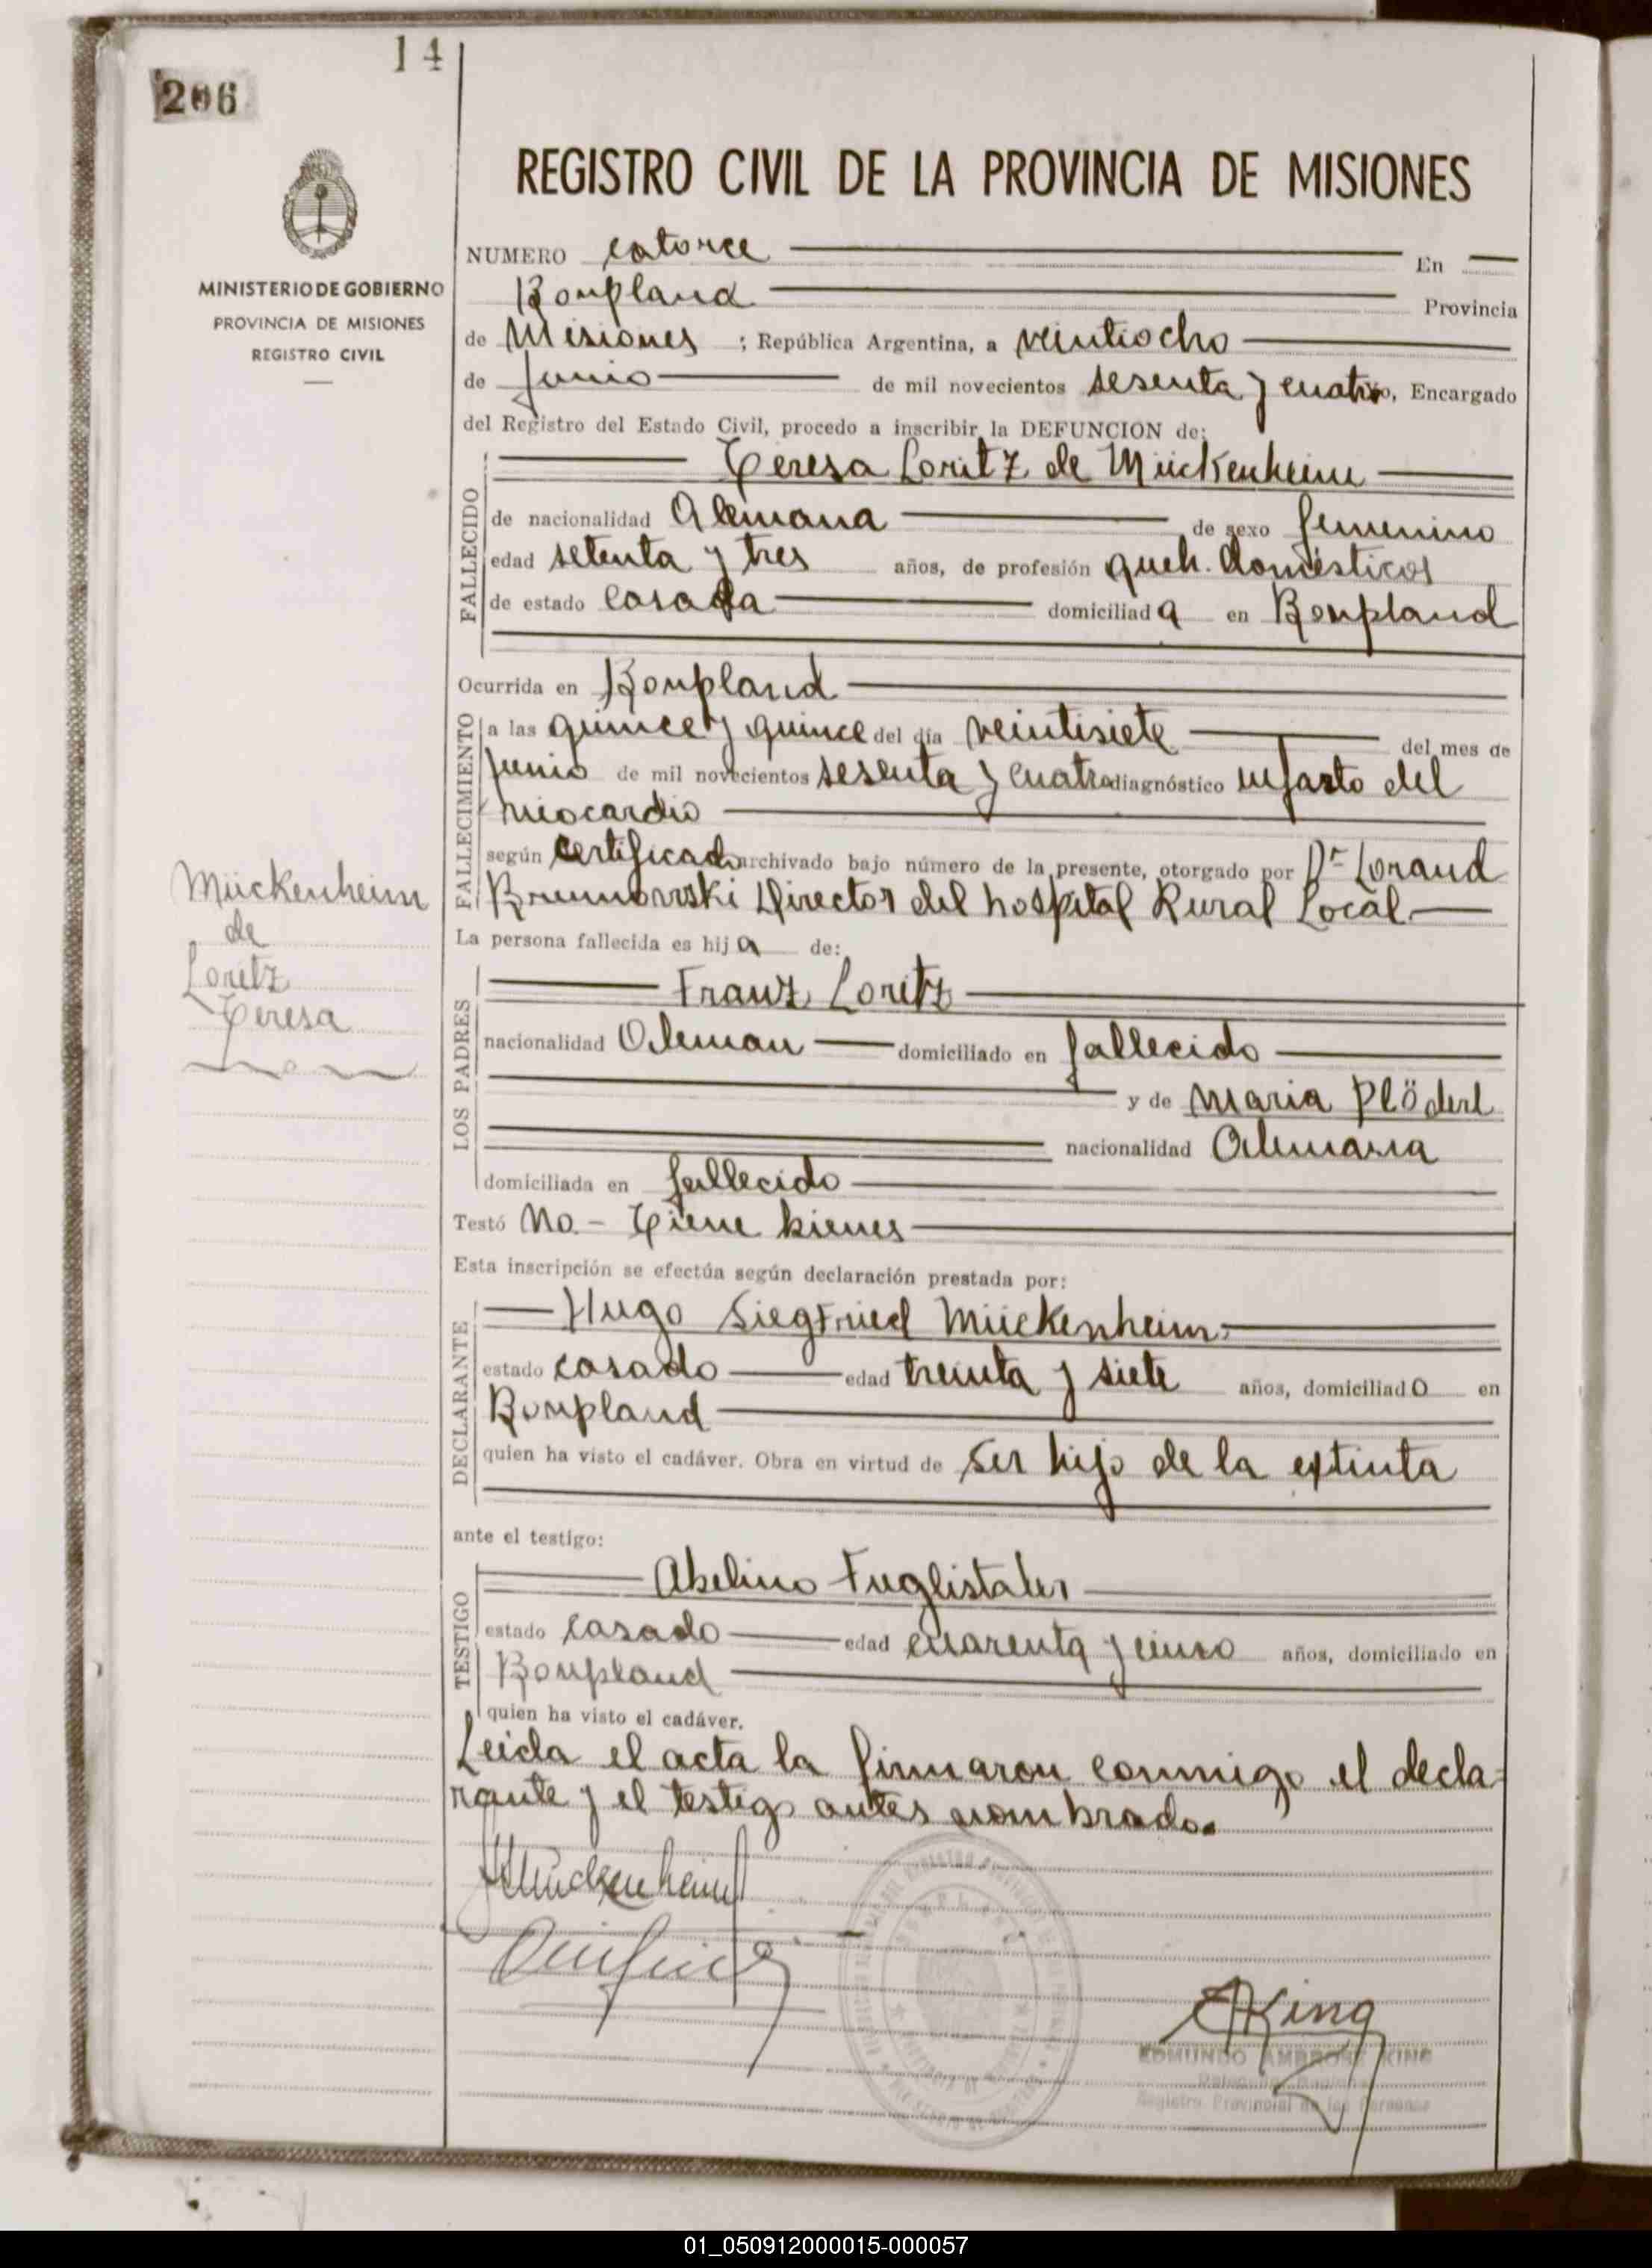 14
206
MINISTERIO DE GOBIERNO
PROVINCIA DE MISIONES
REGISTRO CIVIL
REGISTRO CIVIL DE LA PROVINCIA DE MISIONES
NUMERO catorce En
Bonpland Provincia
de Misiones ; República Argentina, a veintiocho
de junio de mil novecientos sesenta y cuatro, Encargado
del Registro del Estado Civil, procedo a inscribir la DEFUNCION de:
Teresa Loritz de Mückenheim
FALLECIDO
de nacionalidad Alemana de sexo femenino
edad setenta y tres años, de profesión queh. domésticos
de estado casada domiciliada en Bonpland
Ocurrida en Bonpland
FALLECIMIENTO
a las quince y quince del día veintisiete del mes de
junio de mil novecientos sesenta y cuatro diagnóstico infarto del
miocardio
según certificado archivado bajo número de la presente, otorgado por Dr Lorand
Brunnovski Director del hospital Rural Local
Mückenheim
de
Loritz
Teresa
La persona fallecida es hija de:
LOS PADRES
Franz Loritz
nacionalidad Aleman domiciliado en fallecido
y de Maria Plöderl
nacionalidad Alemana
domiciliada en fallecido
Testó No. - Tiene bienes
Esta inscripción se efectúa según declaración prestada por:
DECLARANTE
Hugo Siegfried Mückenheim
estado casado edad treinta y siete años, domiciliado en
Bonpland
quien ha visto el cadáver. Obra en virtud de ser hijo de la extinta
ante el testigo:
TESTIGO
Abelino Fuglistaler
estado casado edad cuarenta y cinco años, domiciliado en
Bonpland
quien ha visto el cadáver.
Leida el acta la firmaron conmigo el decla-
rante y el testigo antes nombrado.
HMückenheim
EAKing
EDMUNDO AMBROSE KING
Registro Provincial de las Personas
01_050912000015-000057